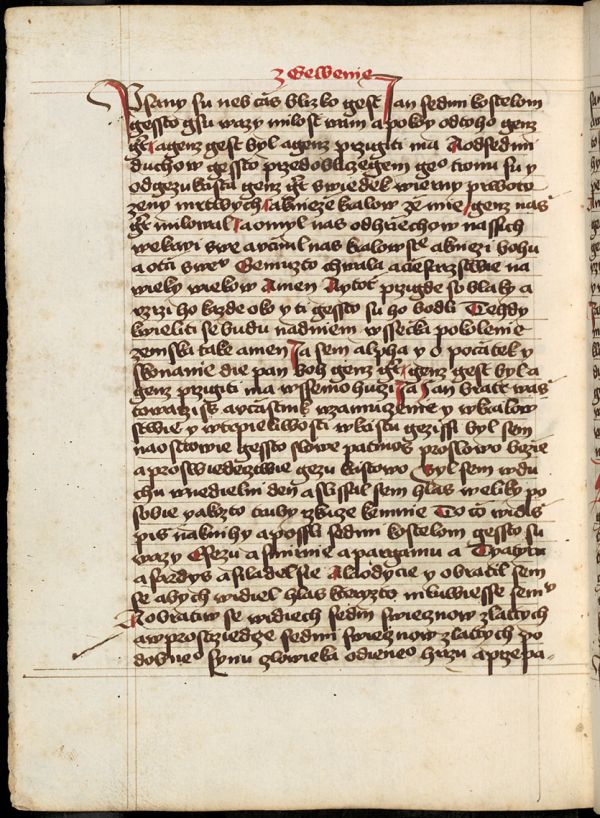 z Gewenie
Psany su neb čas blizko gest Jan sedmi kostelom
gessto gsu wazy milost wam a pokoy od toho genz
gest a genz gest byl a genz przigiti ma A od sedmi
duchow gessto przed obliczegem geo tronu su y
od gezu krista genz gest swiedek wierny prworo
zeny mrtwych a knieze kralow zemie genz nas
gest milowal a omyl nas od hriechow nassich
we krwi swe a včinil nas kralowstwie a kniezi bohu
a otci swemu Gemuzto chwala a ciesarzstwie na
wieky wiekow Amen Aytot przigde s oblaky a
vzrzi ho kazde oko y ti gessto su ho bodli Tehdy
kwieliti se budu nad niem wssecka pokolenie
zemska take amen Ja sem alpha y o počatek y
skonanie die pan boh genz gest genz gest byl a
genz przigiti ma wssemohuzi Ja Jan bratr was
towarzis a včastnik w zamuzenie y w kralow
stwie y w trpieliwosti w kristu gezissi byl sem
na ostrowie gessto slowe patmos pro slowo bozie
a pro swiedecztwie gezu kristowo Byl sem w du
chu w nedielni den a slissal sem hlas weliky po
sobie yakzto truby rzkuze ke mnie To co widis
pis na knihy a possli sedmi kostelom gessto su
w azy Efezu a smirnie a pargamu a Tyatyra
a sardys a filadelfie A laodycie y obratil sem
se abych widiel hlas kteryzto mluwiesse se mnu
A obratiw se widiech sedm swiecznow zlattych
a w prostrziedze sedmi swiecznow zlattych po
dobneo synu człowieka odieneo hrzu a przepa-